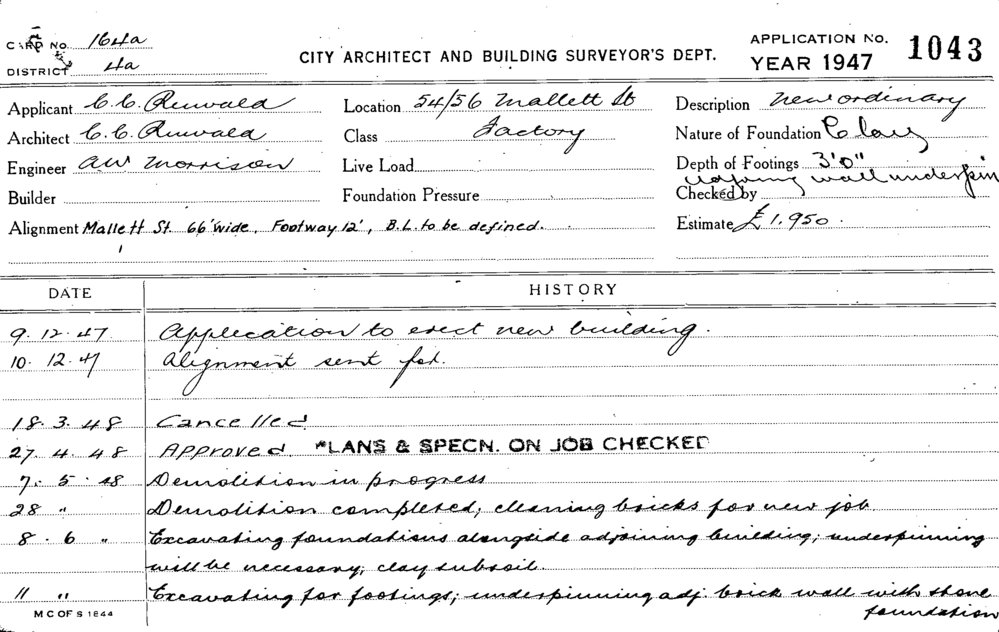 CARD NO. 164a
DISTRICT 4a
CITY ARCHITECT AND BUILDING SURVEYOR'S DEPT.
APPLICATION NO. 1043
YEAR 1947
Applicant C.C. Ruwald Location 54/56 Mallett St Description New ordinary
Architect C.C. Ruwald Class Factory Nature of Foundation Clay
Engineer AW Morrison Live Load Depth of Footings 3'0"
adjoining wall underpin
Builder Foundation Pressure Checked by
Alignment Mallett St. 66' wide, Footway 12', B.L. to be defined. Estimate £1,950.
DATE HISTORY
9. 12. 47 Application to erect new building.
10. 12. 47 Alignment sent for.
18. 3. 48 Cancelled
27. 4. 48 Approved PLANS & SPECN. ON JOB CHECKED
7. 5. 48 Demolition in progress
28 " Demolition completed; cleaning bricks for new job
8. 6 " Excavating foundations alongside adjoining building; underpinning
will be necessary; clay subsoil.
11 " Excavating for footings; underpinning adj. brick wall with stone
foundation
M C OF S 1844